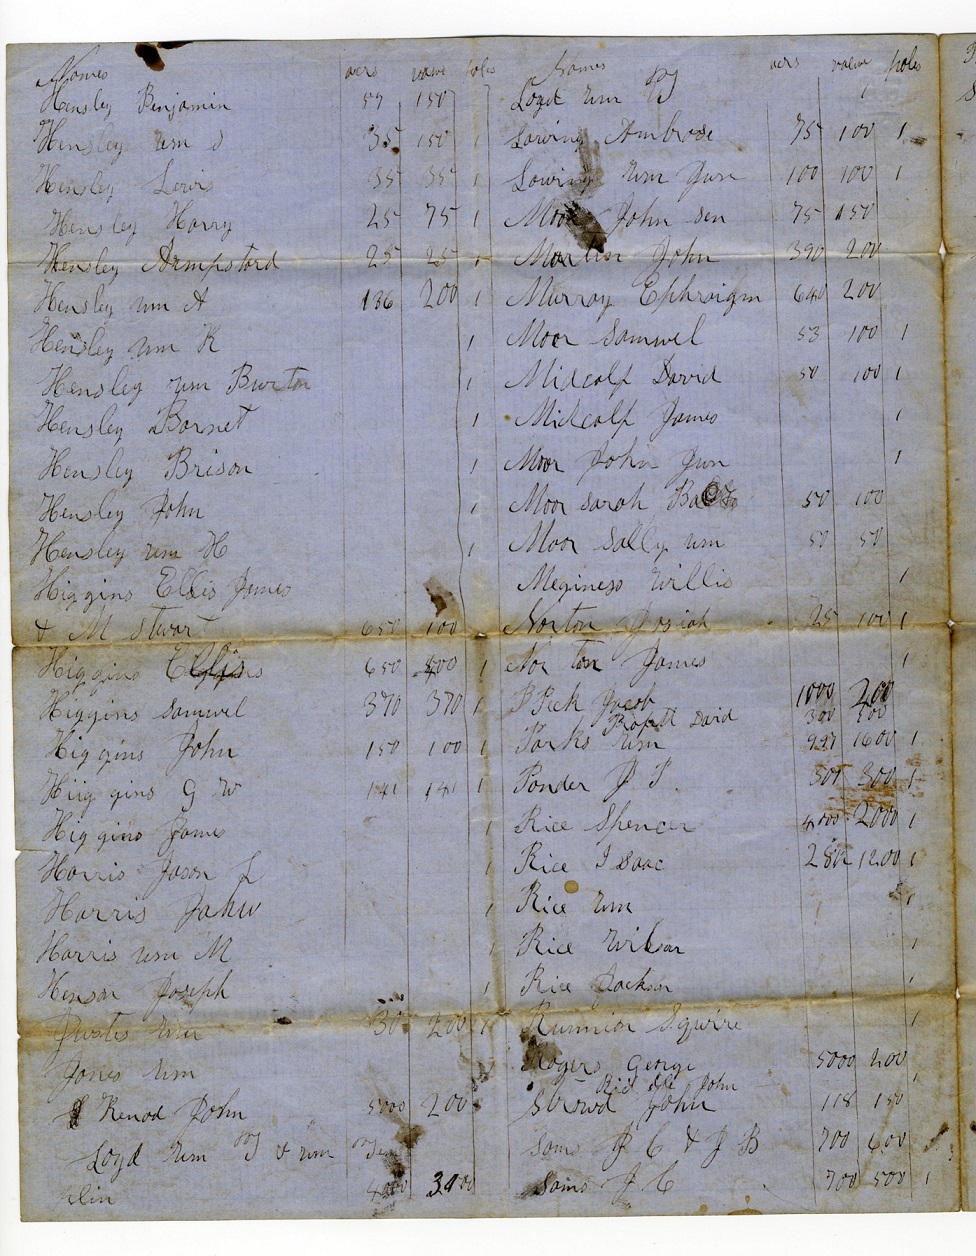 Names acrs value poles
Hensley Benjamin 57 150
Hensley Wm S 35 150 1
Hensley Lewis 35 35 1
Hensley Harry 25 75 1
Hensley Armpstord 25 25 1
Hensley Wm A 136 200 1
Hensley Wm K 1
Hensley Wm Burton 1
Hensley Barnet 1
Hensley Brison 1
Hensley John 1
Hensley Wm H 1
Higgins Ellis James
& M Stuart 650 100
Higgins Ellis 650 400 1
Higgins Samuel 370 370 1
Higgins John 150 100 1
Higgins G W 141 141 1
Higgins James 1
Harris Jason L 1
Harris John 1
Harris Wm M 1
Henson Joseph 1
Wm 30 200 1
Jones Wm
John 5000 200
Loyd Wm & Wm
3400
Names acrs value poles
Loyd Wm
Lawing Ambrose 75 100 1
Lawing Wm Jun 100 100 1
Moor John Sen 75 150
John 390 200
Murray Ephraigm 640 200
Moor Samuel 53 100 1
Midcalf David 50 100 1
Midcalf James 1
Moor John Jun 1
Moor Sarah 50 100
Moor Sally Wm 50 50
Meginess Willis 1
Norton Josiah 25 100 1
Norton James 1
Peek Jacob 1000 200
David 300 500
Parks Wm 997 1600 1
Ponder J T 307 300 1
Rice Spencer 4000 2000 1
Rice Isaac 280 1200 1
Rice Wm 1
Rice Wilson 1
Rice Jackson 1
Runnion Sqwire 1
Rogers George 5000 200
John 1
Strowd John 118 150
Sams J C & J B 700 600
Sams J C 700 500 1